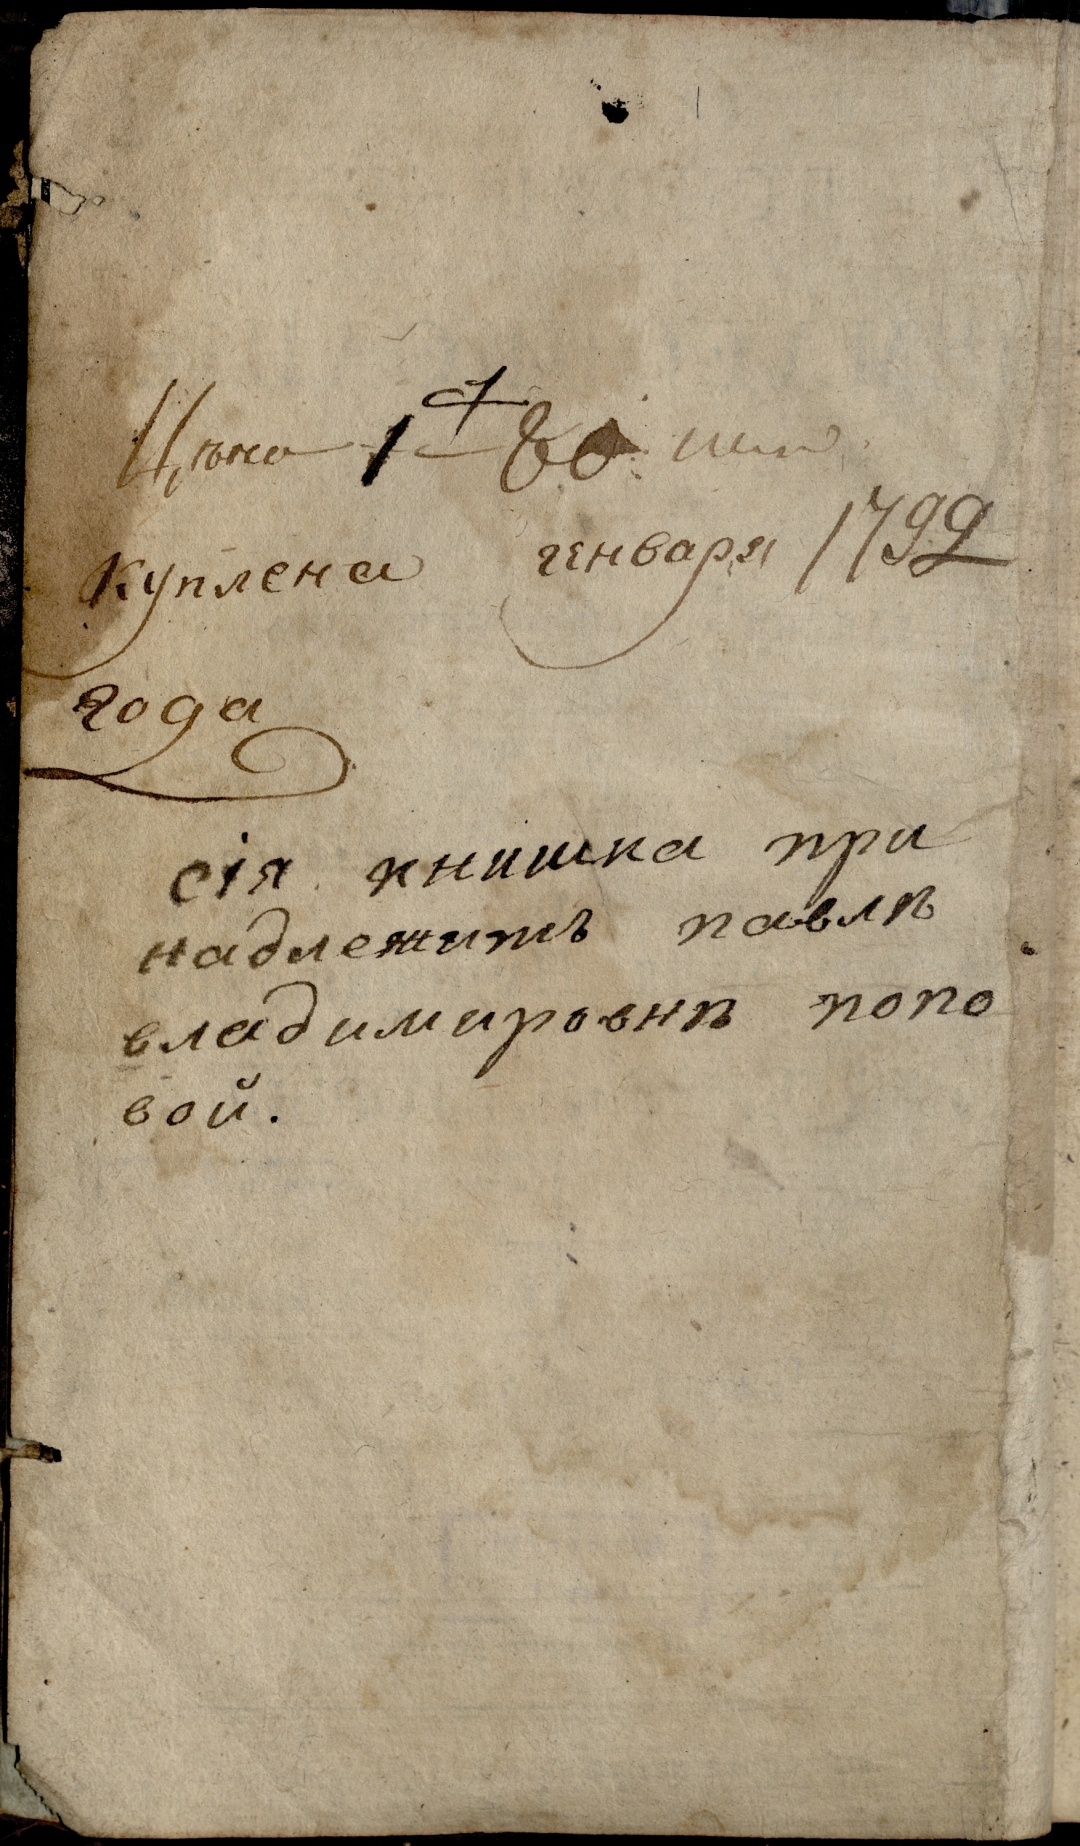 Цѣна 1 80
куплена генваря 1799
года
сія книшка при
надлежитъ павлѣ
владимировнѣ попо
вой.